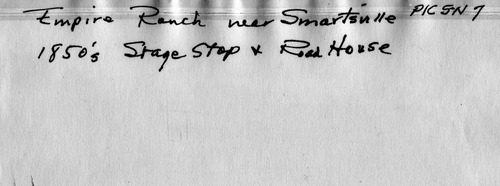 Empire Ranch near Smartsville PIC SN 7
1850's Stage Stop & Road House